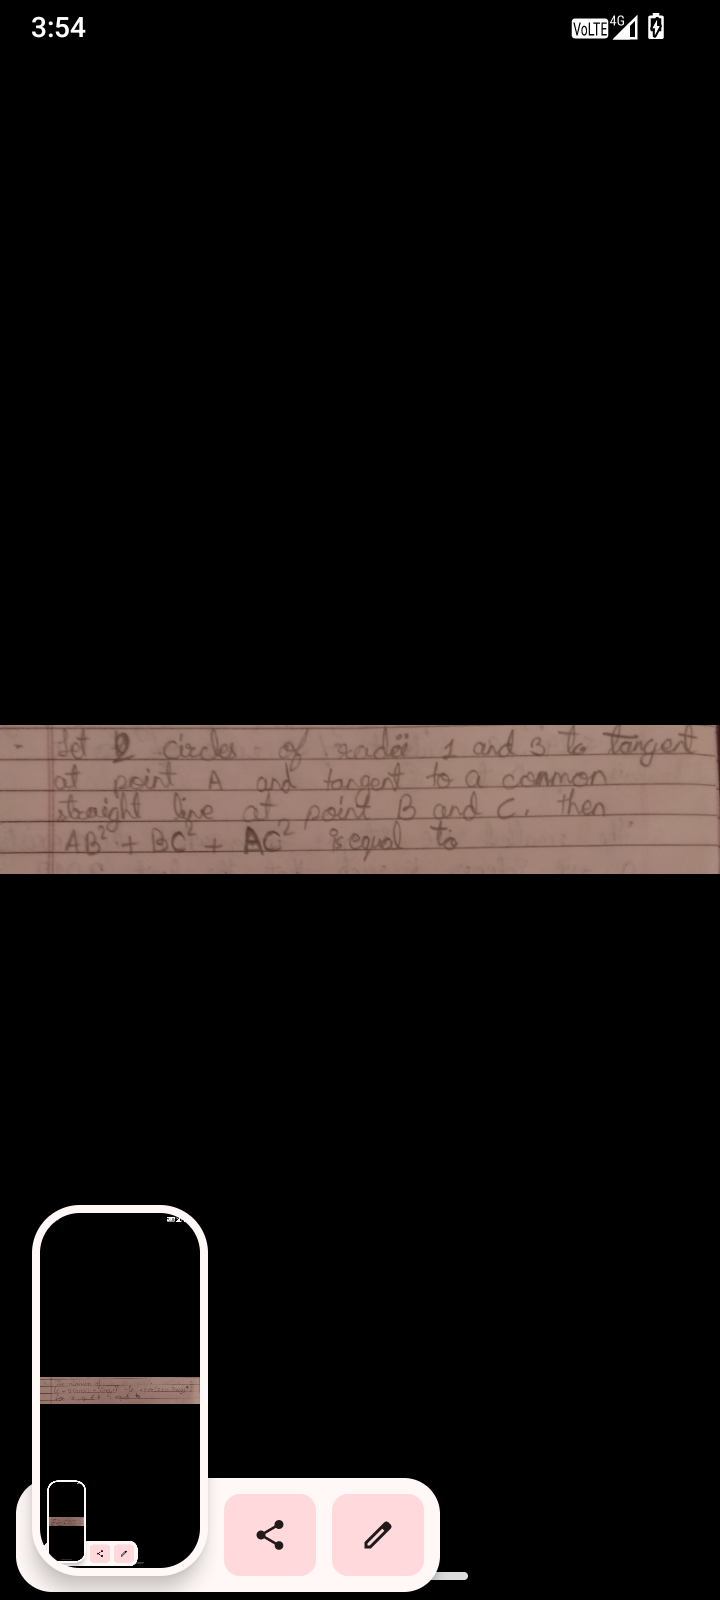 3:54
VoLTE 4G
- Let 2 circles of radii 1 and 3 to tangent
at point A and tangent to a common
straight line at point B and C, then
AB² + BC² + AC² is equal to